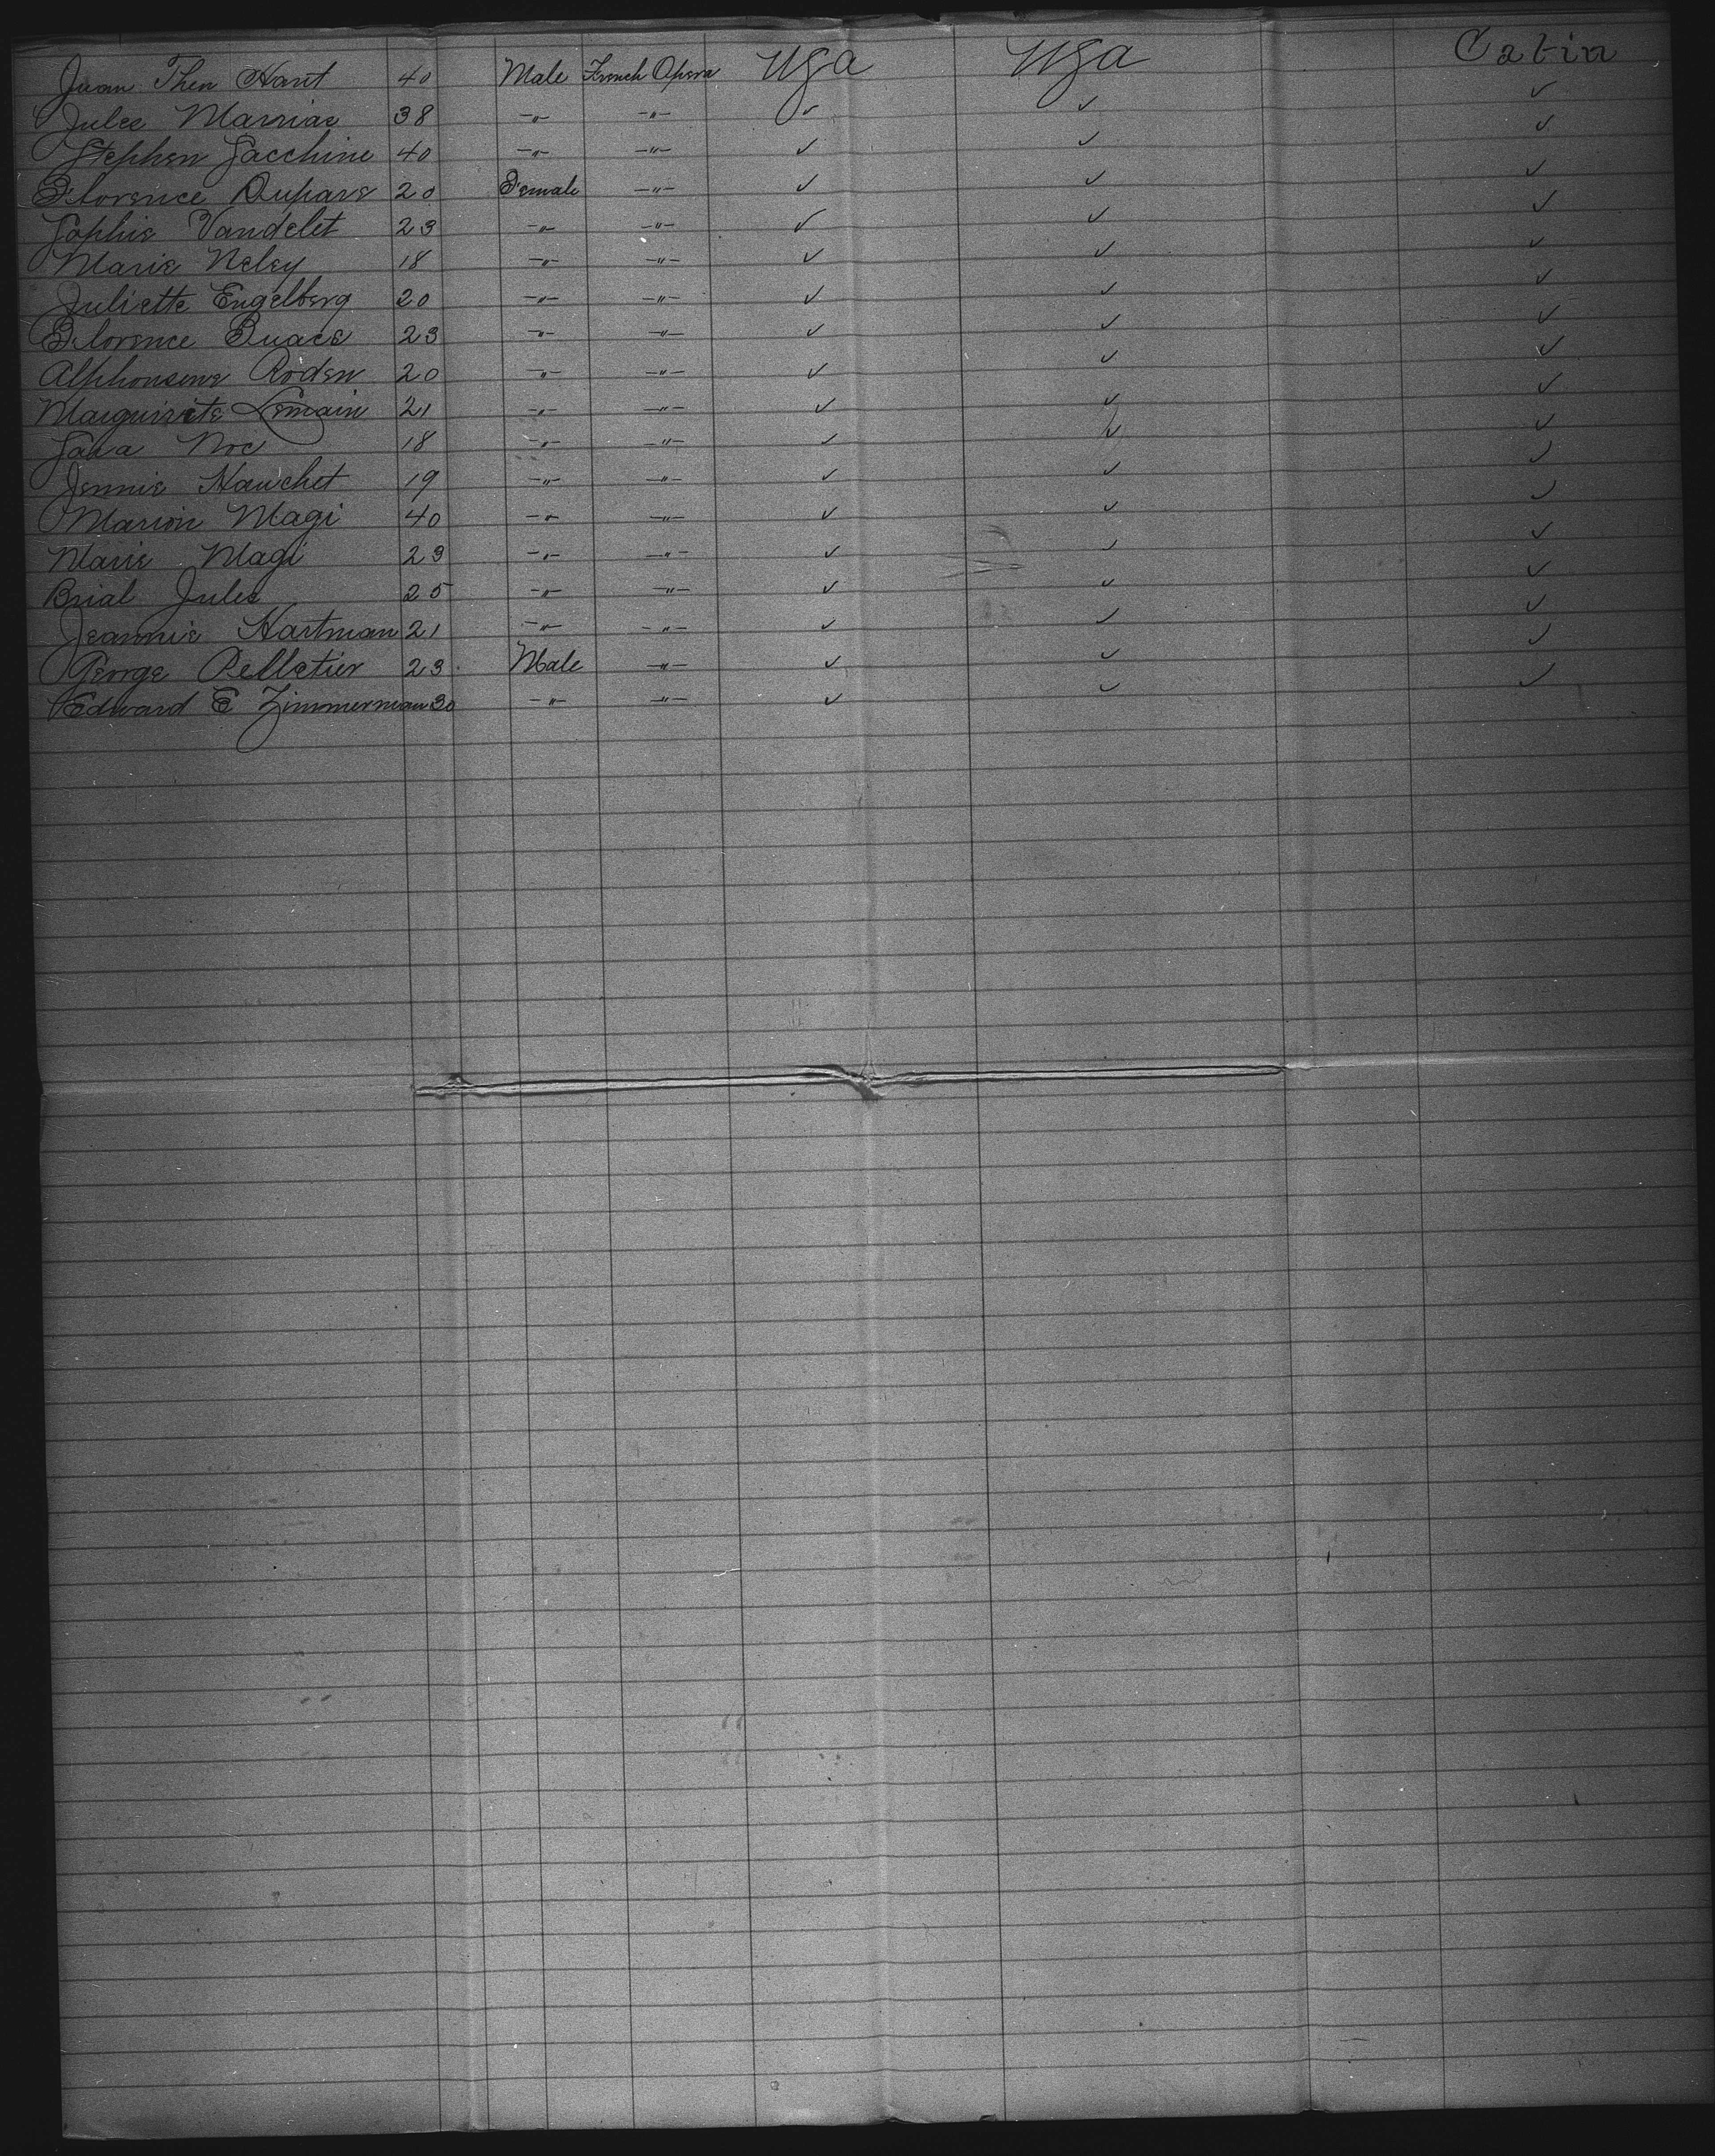 Juan Then Hant 40 Male French Opera USa USa Cabin
Jules Marriae 38 -"- -"- ✓ ✓ ✓
Stephen Sacchine 40 -"- -"- ✓ ✓ ✓
Florence Dupare 20 Female -"- ✓ ✓ ✓
Sophie Vandelet 23 -"- -"- ✓ ✓ ✓
Marie Neley 18 -"- -"- ✓ ✓ ✓
Juliette Engelberg 20 -"- -"- ✓ ✓ ✓
Florence Buace 23 -"- -"- ✓ ✓ ✓
Alphonsene Roden 20 -"- -"- ✓ ✓ ✓
Marguirite Lemain 21 -"- -"- ✓ ✓ ✓
Sara Noe 18 -"- -"- ✓ ✓ ✓
Jennie Hauchet 19 -"- -"- ✓ ✓ ✓
Marion Magi 40 -"- -"- ✓ ✓ ✓
Marie Magi 23 -"- -"- ✓ ✓ ✓
Brial Jules 25 -"- -"- ✓ ✓ ✓
Jeannie Hartman 21 -"- -"- ✓ ✓ ✓
George Pelletier 23 Male -"- ✓ ✓ ✓
Edward E Zimmerman 30 -"- -"- ✓ ✓ ✓